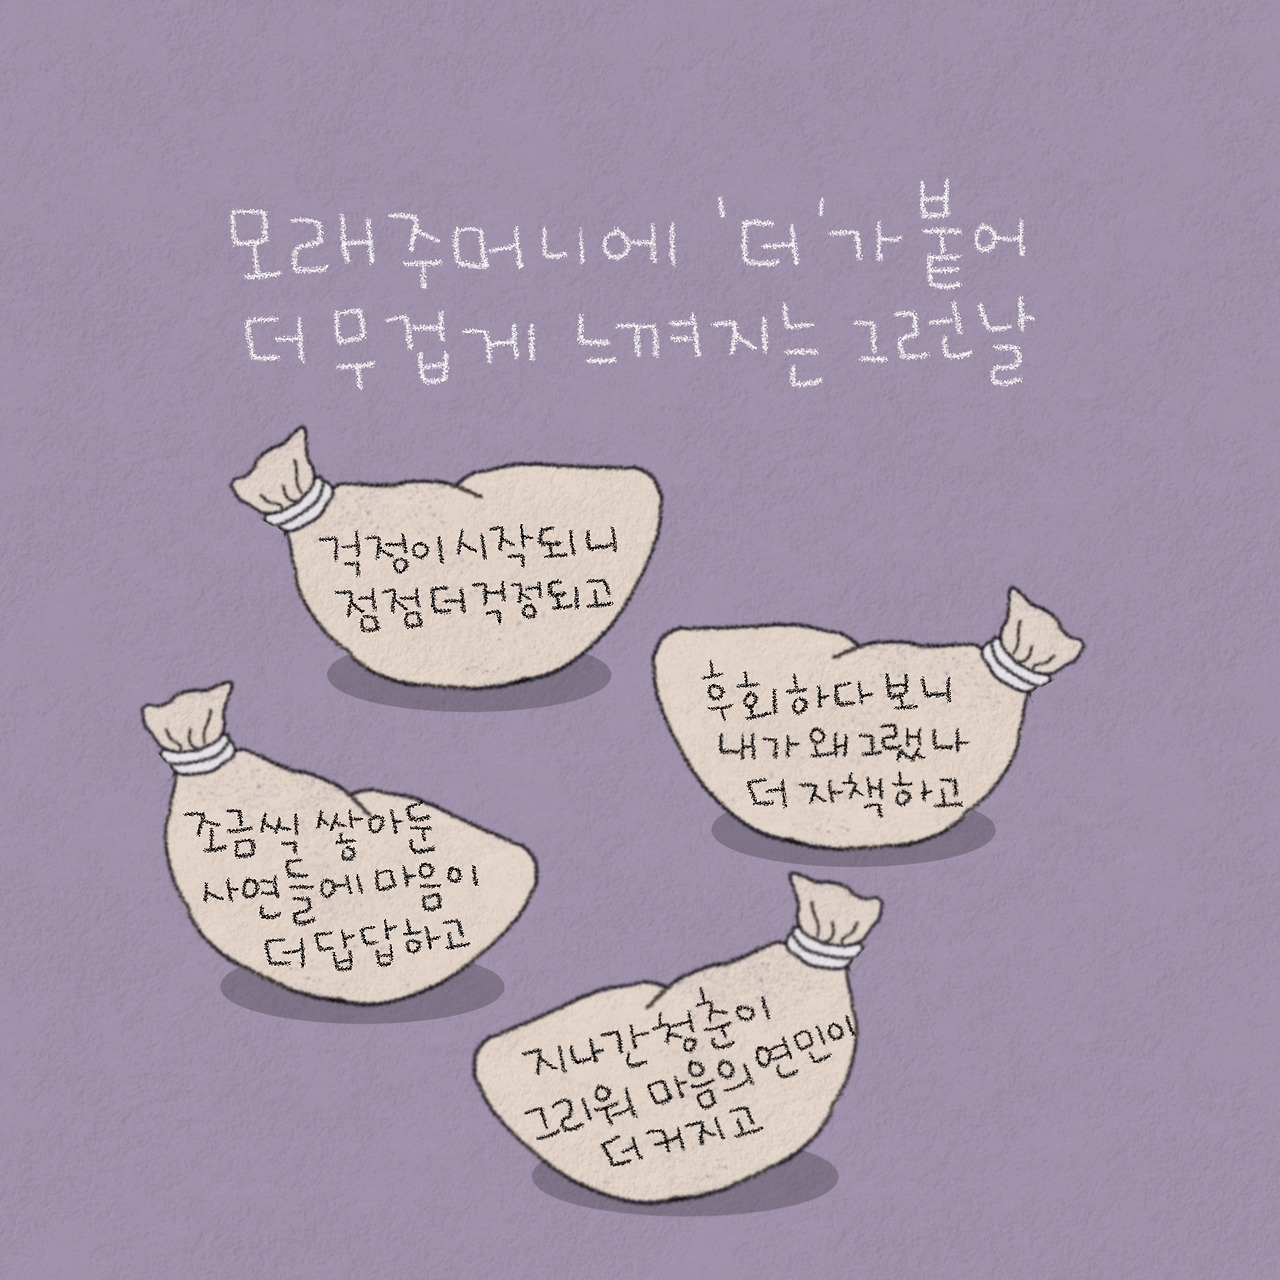 모래주머니에 '더'가 붙어
더 무겁게 느껴지는 그런날
걱정이 시작되니
점점 더 걱정되고
후회하다 보니
내가 왜 그랬나
더 자책하고
조금씩 쌓아둔
사연들에 마음이
더 답답하고
지나간 청춘이
그리워 마음의 연민이
더 커지고